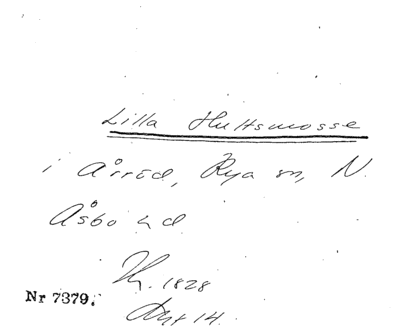 Lilla Hultsmosse
i Årröd, Rya sn, N.
Åsbo hd
Kh. 1828
Nr 7379.
14.